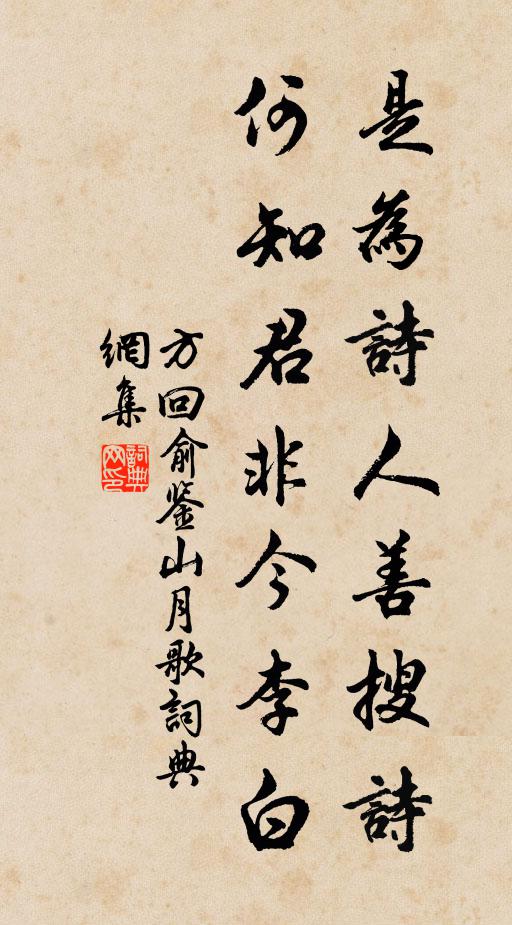 是為詩人善搜詩
何知君非今李白
方回俞鉴山月歌詞典
網集
詞典
网印